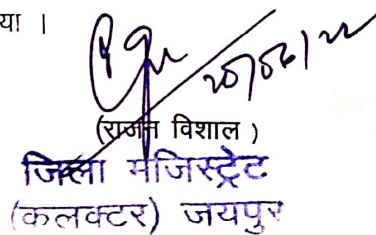 या ।
(राजन विशाल)
जिला मजिस्ट्रेट
(कलक्टर) जयपुर